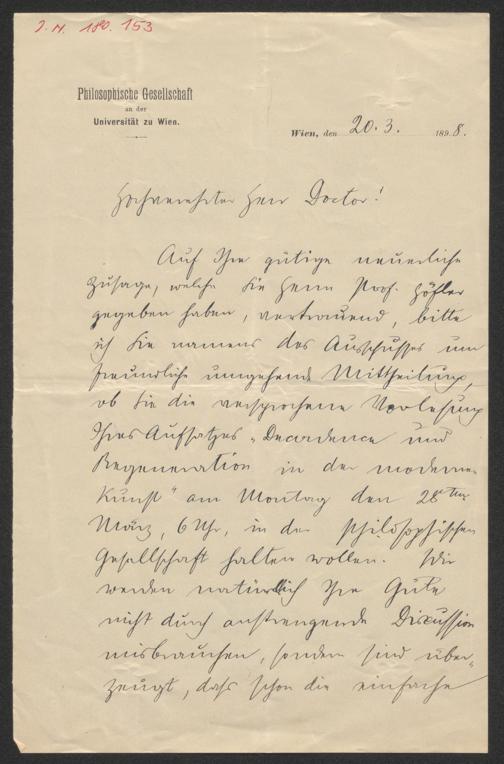 J. N. 180.153
Philosophische Gesellschaft
an der
Universität zu Wien.
Wien, den 20. 3. 1898.
Hochverehrter Herr Doctor!
Auf Ihre gütige neuerliche
Zusage, welche Sie Herrn Prof. Höfler
gegeben haben, vertrauend, bitte
ich Sie namens des Ausschusses um
freundliche umgehende Mittheilung,
ob Sie die versprochene Vorlesung
Ihres Aufsatzes „Decardence und
Regeneration in der modernen
Kunst" am Montag den 28ten
März, 6 Uhr, in der Philosophischen
Gesellschaft halten wollen. Wir
werden natürlich Ihre Güte
nicht durch anstrengende Discussion
misbrauchen, sondern sind über-
zeugt, dass schon die einfache